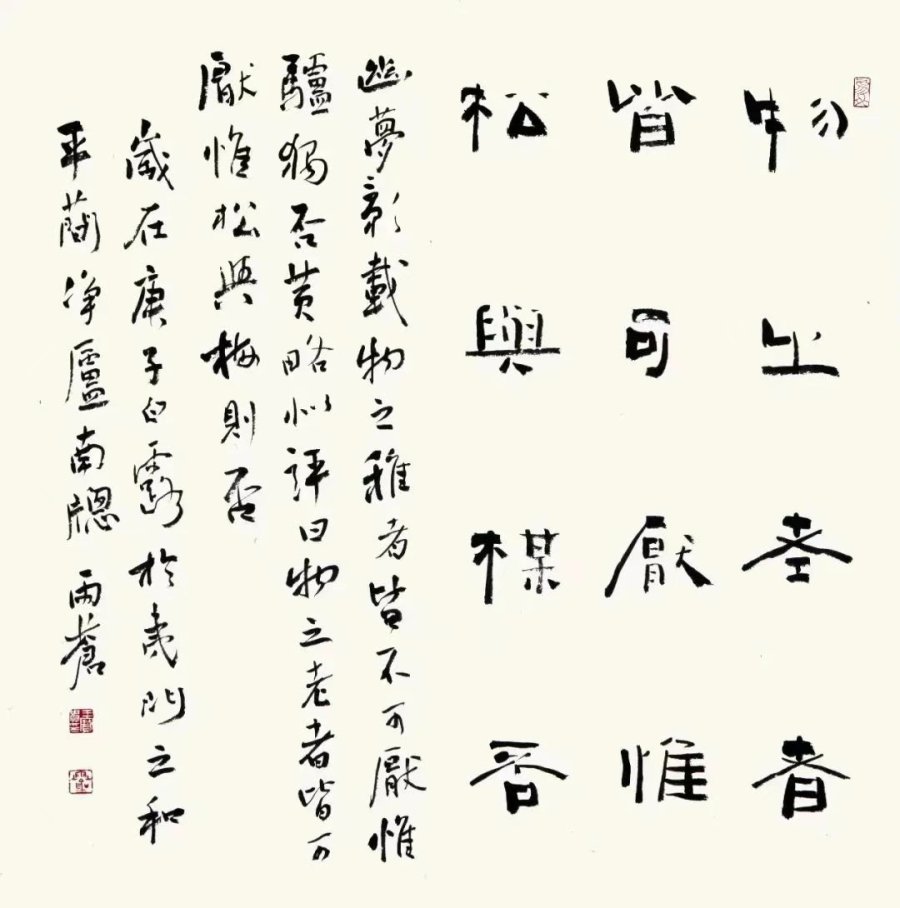 物之老者
皆可厭惟
松與楳否
幽夢影載物之稚者皆不可厭惟
驢獨否黄略似評曰物之老者皆可
厭惟松與梅則否
歲在庚子白露於夷門之和
平蘭淨廬南牕 雨蒼